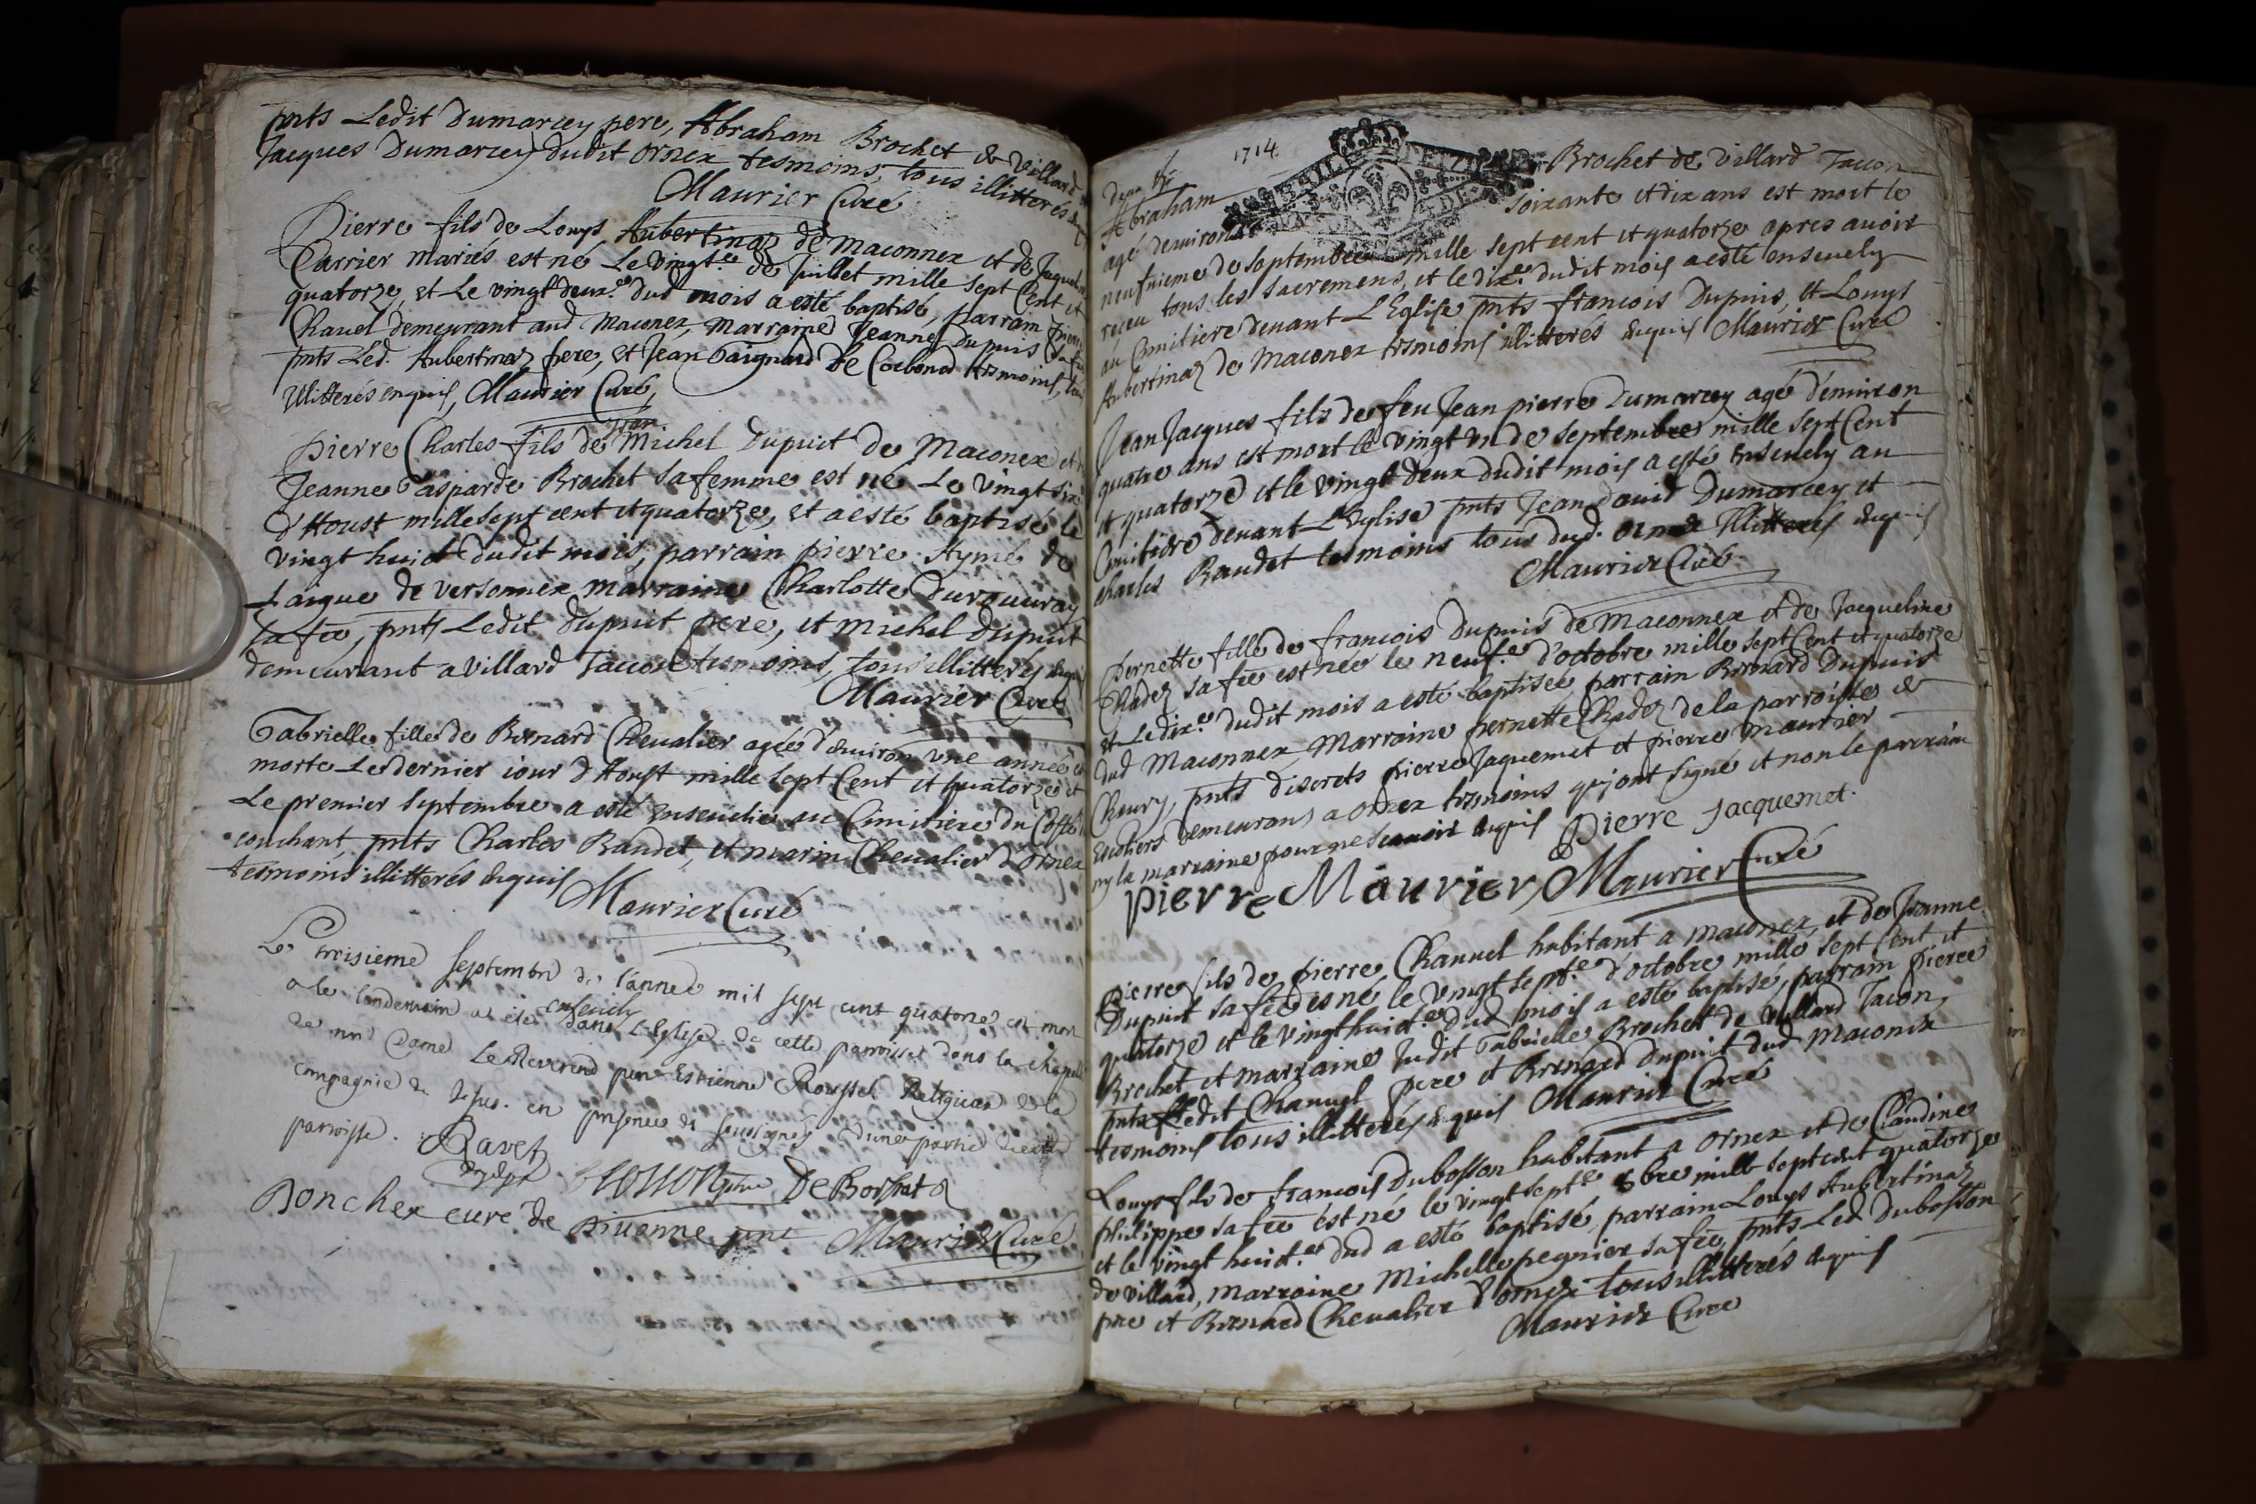 pnts Ledit Dumarcey pere, Abraham Brochet de Villard
Jacques Dumarcey dudit ornex tesmoins, tous illitterés
Maurier Curé
Pierre fils de Louys Aubertinaz de Maconnex et de Jaquel
Carrier mariés est né Le vingt.e de Juillet mille sept Cent et
quatorze, et Le vingt deux.e dud mois a esté baptisé, parrain pierre
Chavel demeurant aud Maconex, marraine Jeanne Dupuis sa fe
pnts Led. Aubertinaz pere, et Jean Gaignard de Corbonod tesmoins, tous
illitterés enquis, Maurier Curé,
Jean
Pierre Charles fils de Michel Dupuict de Maconex et
Jeanne Gasparde Brochet sa femme est né Le vingt six
d'Aoust mille sept cent et quatorze, et a esté baptisé le
vingt huict dudit mois, parrain pierre Aymé de
Laigue de versonnex marraine Charlotte Durouvray
sa fee, pnts Ledit Dupuict pere, et Michel Dupuict
demeurant a villard Tacon tesmoins, tous illitterés enquis
Maurier Curé
Gabrielle fille de Bernard Chevalier agée d'environ une année est
morte Le dernier iour d'Aoust mille sept Cent et quatorze et
Le premier septembre a esté ensevelie au Cimitiere du Costé
couchant, pnts Charles Baudet, et marin Chevalier d'ornex
tesmoins illitterés enquis Maurier Curé
Le troisieme septembre de l'année mil sept cent quatorze est mort
& le lendemain a ete enseveli dans L'Eglise de cette parroisse dans la chapelle
de nre Dame Le Reverend pere Estienne Roussel Religieux de la
compagnie de Jesus. en presence de soussignés d'une partie de cette
parroisse. Ravet
De Borssat
Poncher curé de Divonne pnt Maurier Curé
1714.
Abraham Brochet de Villard Tacon
agé d'environ soixante et dix ans est mort le
neufvieme de septembre mille sept cent et quatorze apres avoir
receu tous les sacremens, et le dix.e dudit mois a esté ensevely
au Cimitiere devant L'Eglise pnts francois Dupuis, et Louys
Aubertinaz de Maconex tesmoins illitterés enquis Maurier Curé
Jean Jacques fils de feu Jean pierre Dumarcey agé d'environ
quatre ans est mort le vingt un de septembre mille sept Cent
et quatorze et le vingt deux dudit mois a esté ensevely au
Cimitiere devant L'Eglise pnts Jean david Dumarcey et
Charles Baudet tesmoins tous dud. ornex Illitterés enquis
Maurier Curé
Pernette fille de francois Dupuis de Maconnex et de Jacqueline
Chadez sa fee est née le neuf.e d'octobre mille sept Cent et quatorze
et Le dix.e dudit mois a esté baptisée, parrain Bernard Dupuis
dud Maconnex, Marraine pernette Chadez de la parroisse de
Chevry, pnts discrets pierre Jaquemet et pierre Maurier
Escoliers demeurans a ornex tesmoins qui ont signé et non le parrain
ny la marraine pour ne scavoir enquis Pierre Jacquemet.
Pierre Maurier, Maurier Curé
Pierre fils de pierre Chanuel habitant a maconex, et de Jeanne
Dupuict sa fee est né le vingt sept.e d'octobre mille sept Cent, et
quatorze et le vingt huict.e dud mois a esté baptisé, parrain pierre
Brochet et marraine Judit Gabrielle Brochet de villard Tacon,
pnts Ledit Chanuel pere et Bernard Dupuict dud Maconex
tesmoins tous illitterés enquis Maurier Curé
Louys fils de francois Dubosson habitant a ornex et de Claudine
philippe sa fee est né le vingt sept.e 8bre mille sept cent quatorze
et le vingt huict.e dud a esté baptisé, parrain Louys Aubertinaz
de villard, marraine Michelle pegnier sa fee, pnts Led Dubosson
pere et Bernard Chevalier d'ornex tous illitterés enquis
Maurier Curé